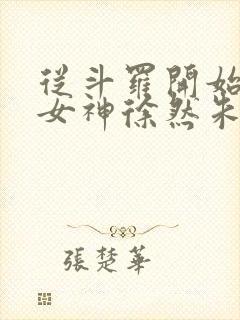 從斗羅開始
女神徐然朱
張楚華